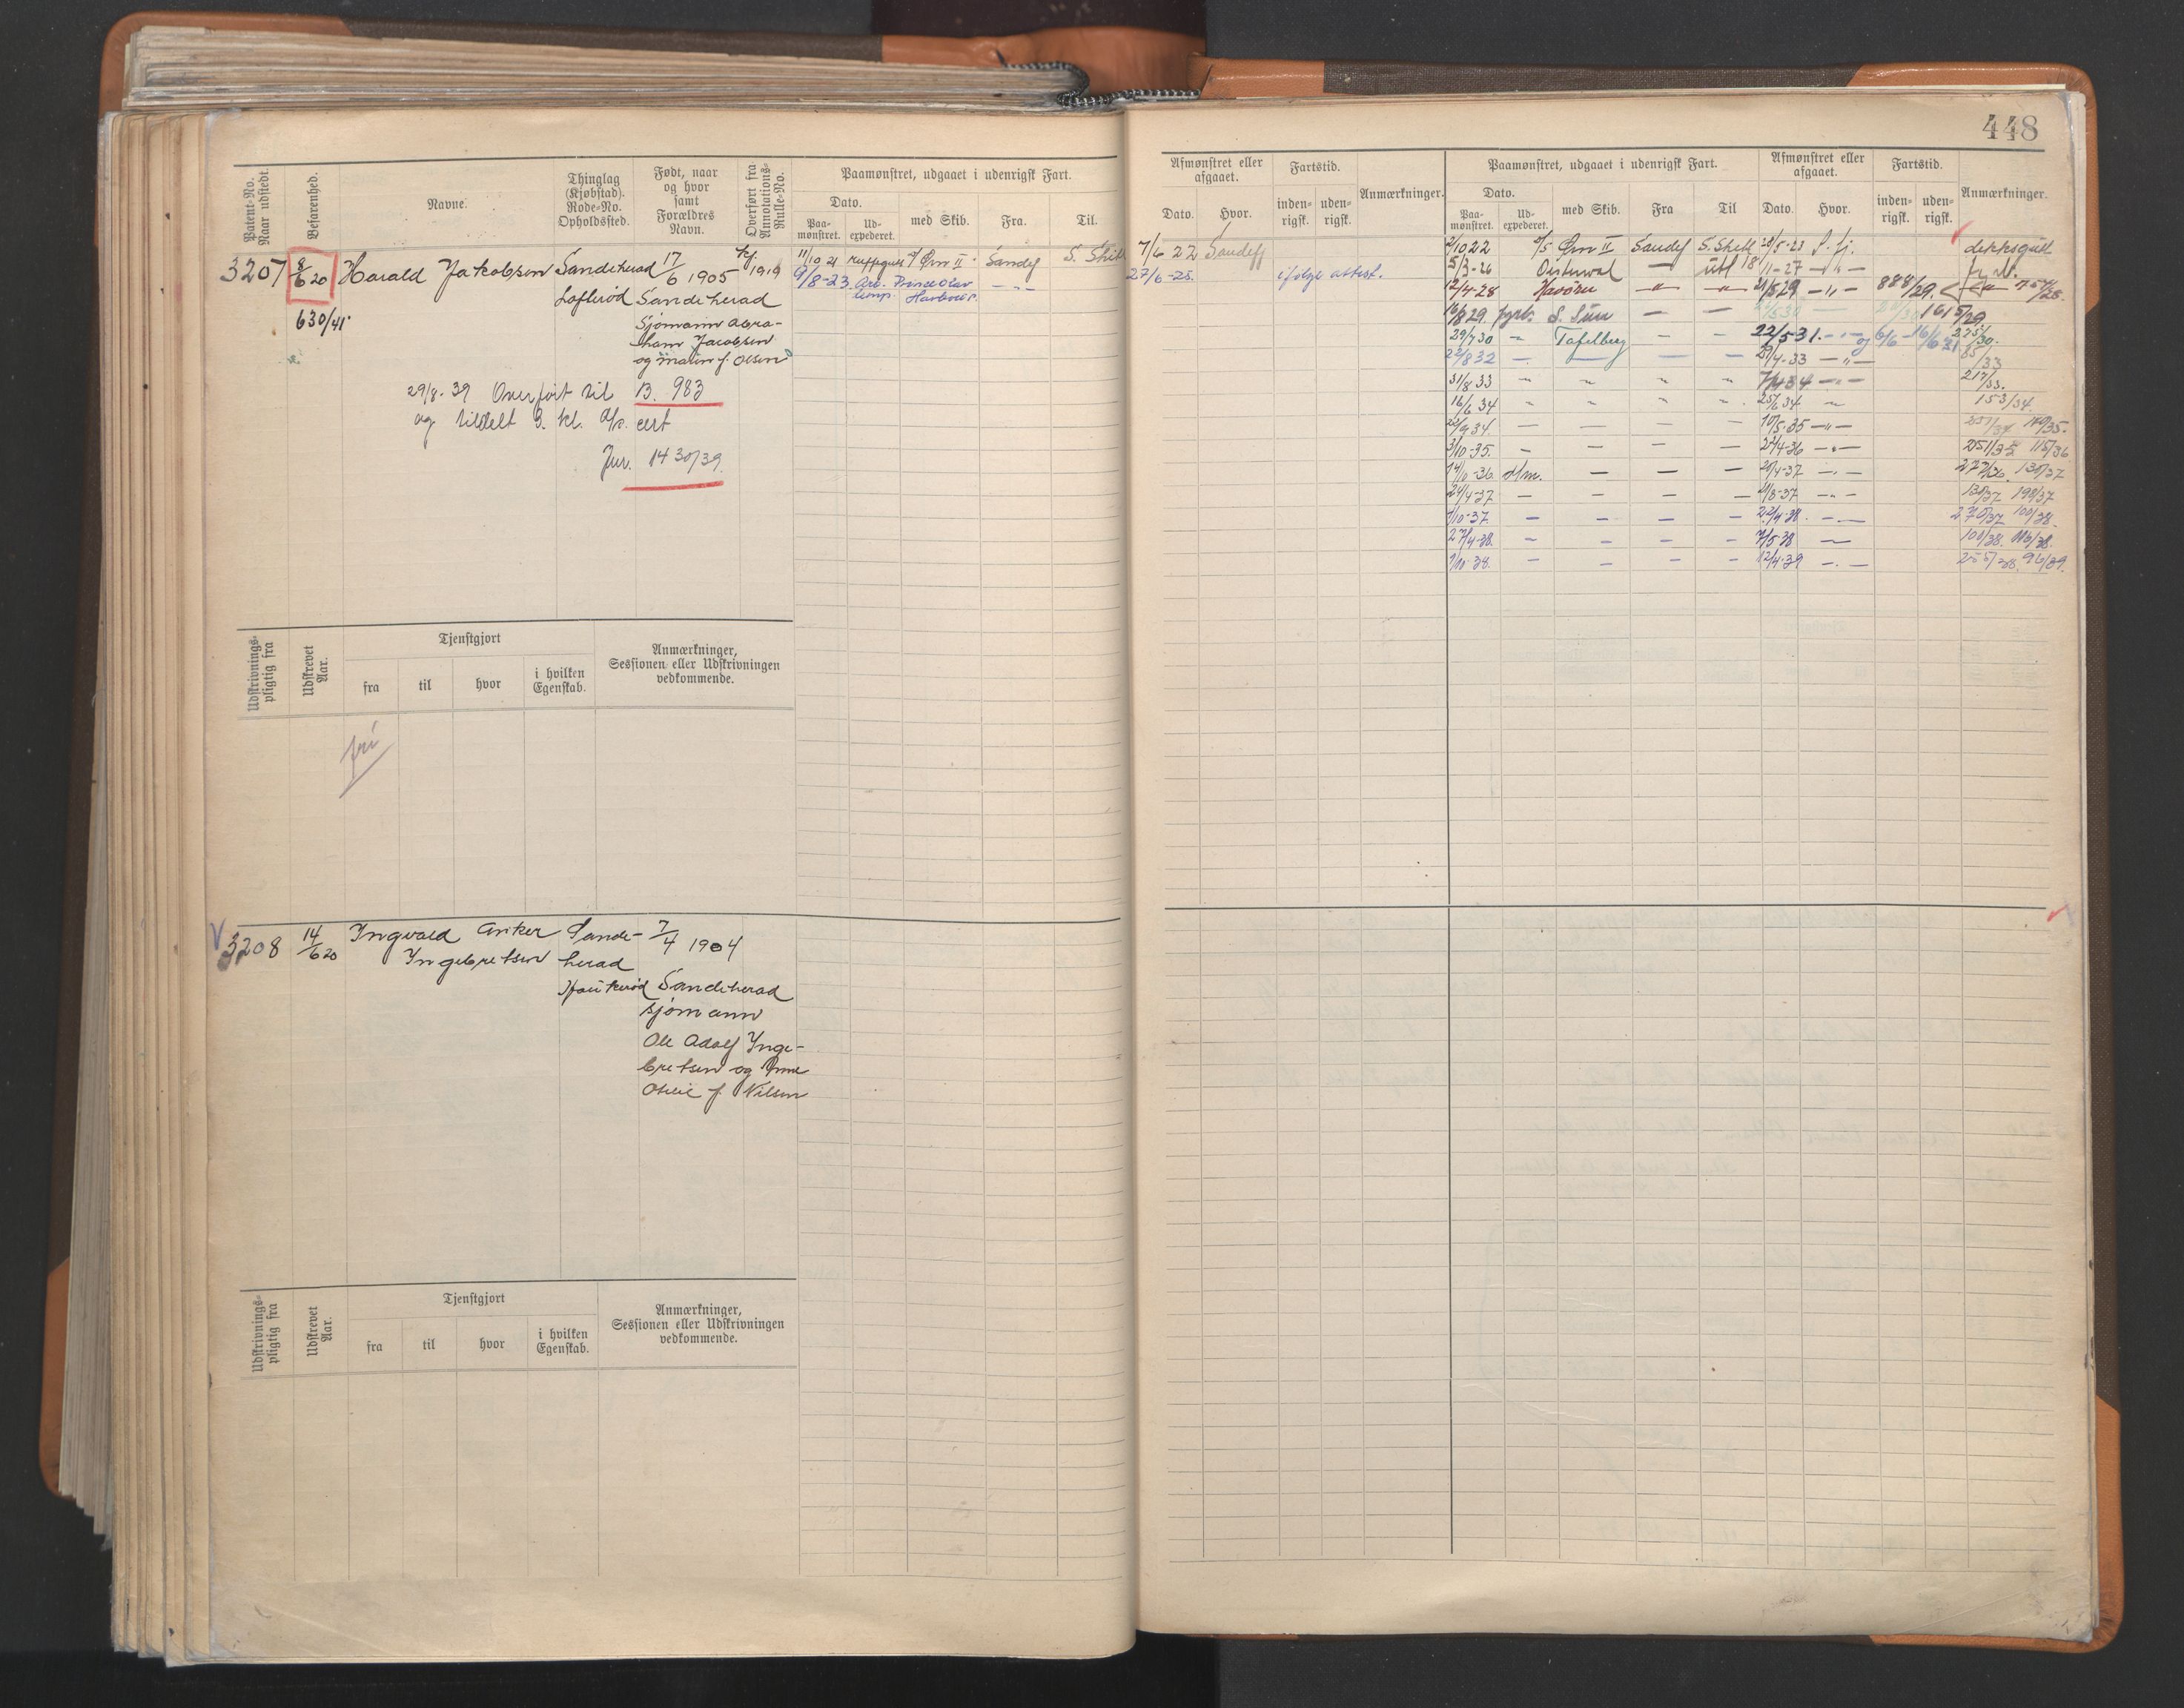 448
Patent-No. Naar udstedt.
Befarenhed.
Navne.
Thinglag (Kjøbstad). Rode-No. Opholdssted.
Født, naar og hvor samt Forældres Navn.
Overført fra Annotations-Rulle-No.
Paamønstret, udgaaet i udenrigsk Fart.
Dato.
Paa-mønstret.
Ud-expederet.
med Skib.
Fra.
Til.
Afmønstret eller afgaaet.
Dato.
Hvor.
Fartstid.
inden-rigsk.
uden-rigsk.
Anmærkninger.
Paamønstret, udgaaet i udenrigsk Fart.
Dato.
Paa-mønstret.
Ud-expederet.
med Skib.
Fra
Til
Afmønstret eller afgaaet.
Dato.
Hvor.
Fartstid.
inden-rigsk.
uden-rigsk.
Anmærkninger.
3207 8/6 20 Harald Jakobsen Sandeherad 17/6 1905 1919
630/41 Lofterød Sandeherad
Sjømann Abra-
ham Jacobsen
og Malin f. Olsen
29/8-39 Overført til B. 983
og tildelt 3. kl. cert
Jur. 1430/39
11/10 21 Ørn II Sandefj S. Shetl
7/6 22 Sandefj
9/8-23 Arb. Prince Olav
Harbour
27/6-25 ifølge attest.
2/10 22 Ørn II Sandefj S. Shetl 28/5-23 S.fj. dekksgutt
5/3-26 — 18/11-27 — " — fyrb.
12/4-28 Havørn — " — — " — 21/5 29 — " — 888/29
16/8 29 fyrb. — — 1615/29
29/7 30 " Tafelberg — — 22/5-31 — " — og 6/6 - 16/6 31 275/30
22/8 32 — — — — 29/4-33 — " — 85/33
31/8 33 " " " " 7/4 34 — " — 217/33
16/6 34 " " " " 25/6 34 " 153/34
22/9 34 — — — — 10/5-35 — " — 251/34 140/35
3/10-35 — — — — 22/4-36 — " — 251/35 115/36
14/10-36 — — — 20/4-37 — " — 277/36 130/37
24/4-37 — — — — 21/8-37 — " — 130/37 198/37
1/10-37 — — — — 22/4-38 — 270/37 100/38
27/4-38 — — — — 7/5-38 — 100/38 116/38
1/10-38 — — — — 12/4-39 — " — 255/38 96/39
Udskrivnings-pligtig fra
Udskrevet Aar.
Tjenstgjort
fra
til
hvor
i hvilken Egenskab.
Anmærkninger, Sessionen eller Udskrivningen vedkommende.
fri
3208 14/6 20 Ingvald Anker Sande- 7/4 1904
Ingebretsen herad
Haukerød Sandeherad
sjømann
Ole Adolf Inge-
bretsen og Anne
Otilie f. Nilsen
Udskrivnings-pligtig fra
Udskrevet Aar.
Tjenstgjort
fra
til
hvor
i hvilken Egenskab.
Anmærkninger, Sessionen eller Udskrivningen vedkommende.